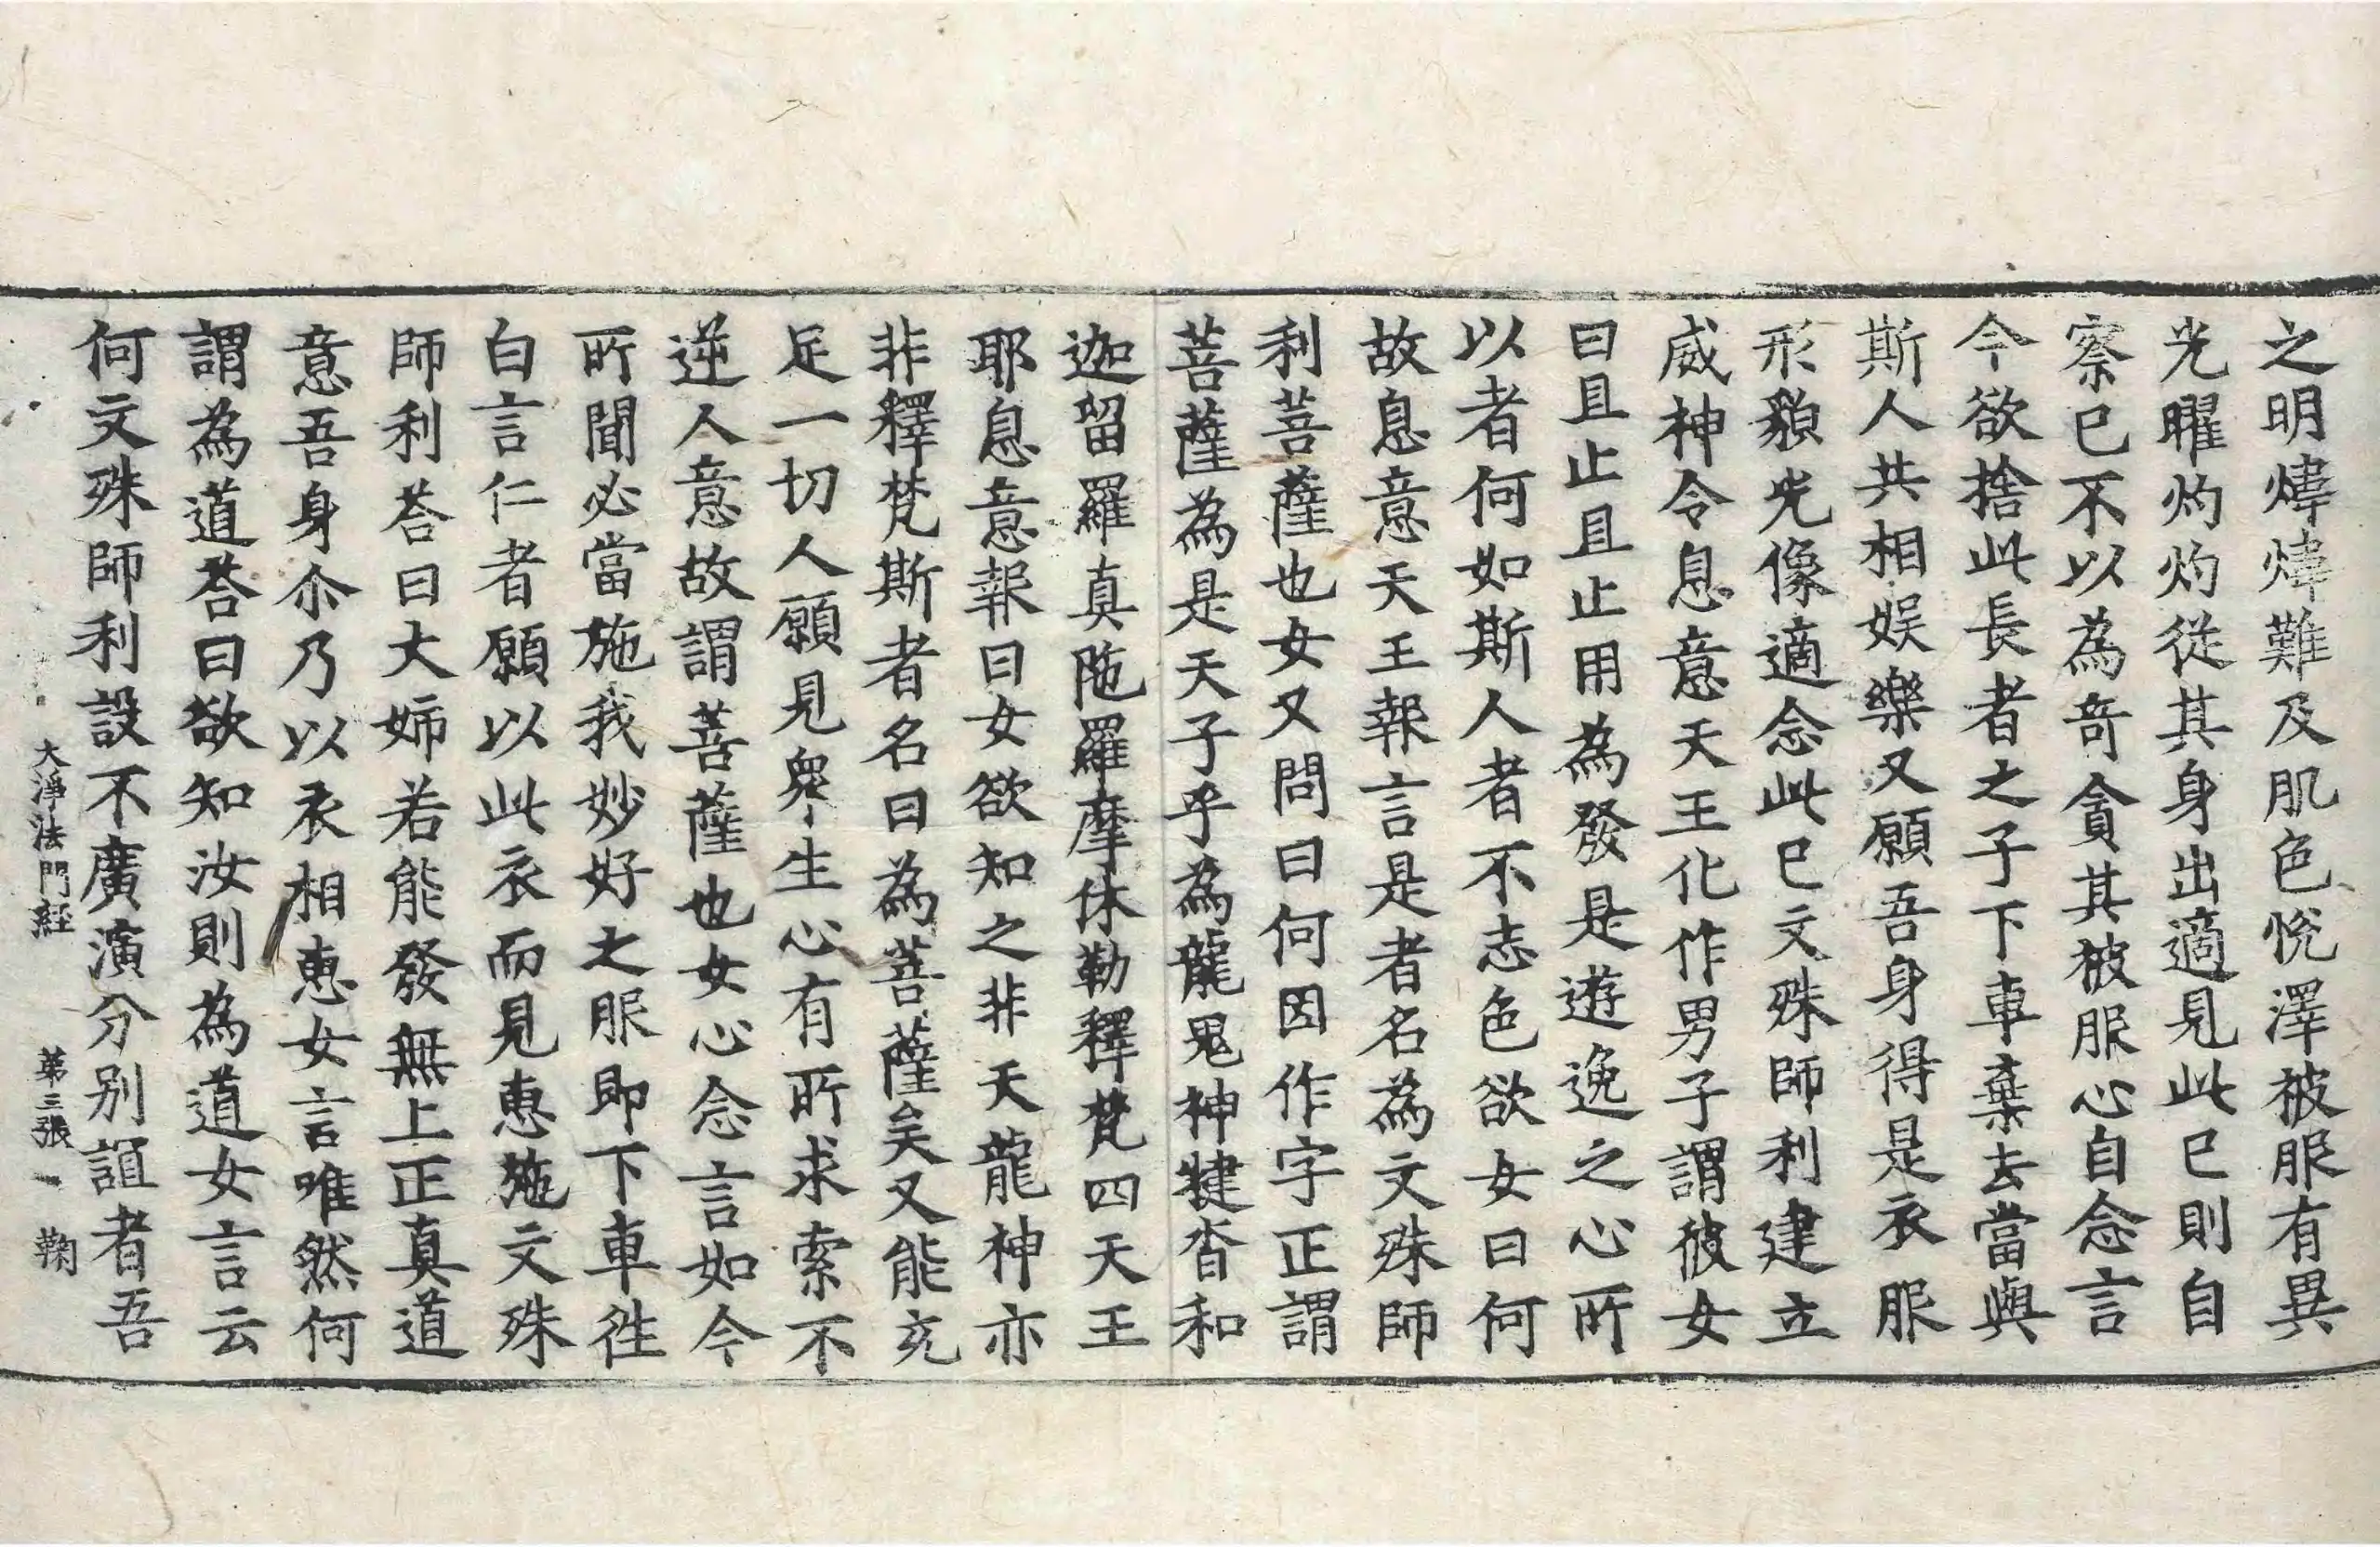 之明煒煒難及肌色悅澤被服有異
光曜灼灼從其身出適見此已則自
察已不以為奇貪其被服心自念言
今欲捨此長者之子下車棄去當與
斯人共相娛樂又願吾身得是衣服
形貌光像適念此已文殊師利建立
威神令息意天王化作男子謂彼女
曰且止且止用為發是遊逸之心所
以者何如斯人者不志色欲女曰何
故息意天王報言是者名為文殊師
利菩薩也女又問曰何因作字正謂
菩薩為是天子乎為龍鬼神揵沓和
迦留羅真陁羅摩休勒釋梵四天王
耶息意報曰女欲知之非天龍神亦
非釋梵斯者名曰為菩薩矣又能充
足一切人願見衆生心有所求索不
逆人意故謂菩薩也女心念言如今
所聞必當施我妙好之服即下車徃
白言仁者願以此衣而見惠施文殊
師利荅曰大姉若能發無上正真道
意吾身尒乃以衣相惠女言唯然何
謂為道荅曰欲知汝則為道女言云
何文殊師利設不廣演分别誼者吾
大淨法門經 第三張 鞠